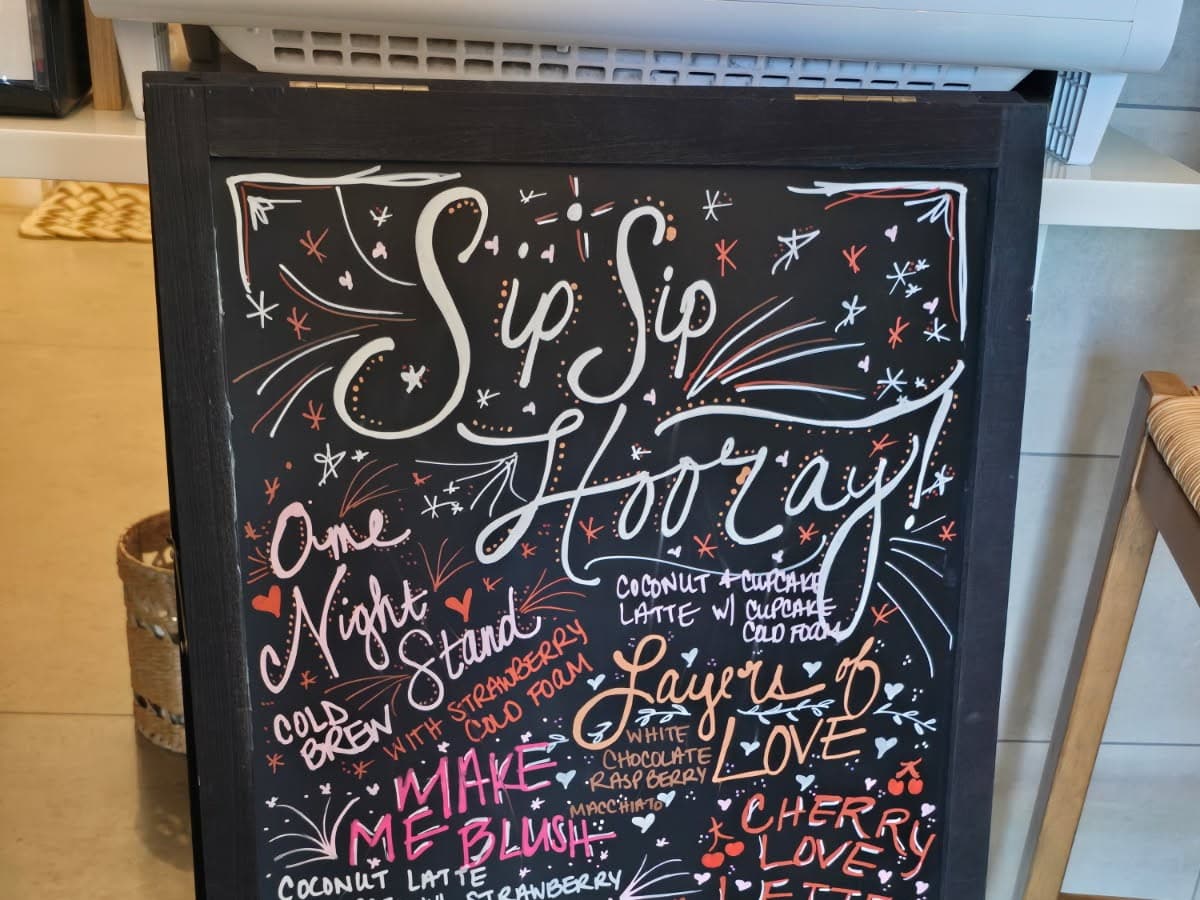 Sip Sip
Hooray!
COCONUT + CUPCAKE
LATTE W/ CUPCAKE
COLD FOAM
One
Night
Stand
COLD
BREW
WITH STRAWBERRY
COLD FOAM
Layers of
LOVE
WHITE
CHOCOLATE
RASPBERRY
MACCHIATO
MAKE
ME BLUSH
COCONUT LATTE
W/ STRAWBERRY
CHERRY
LOVE
LETTE